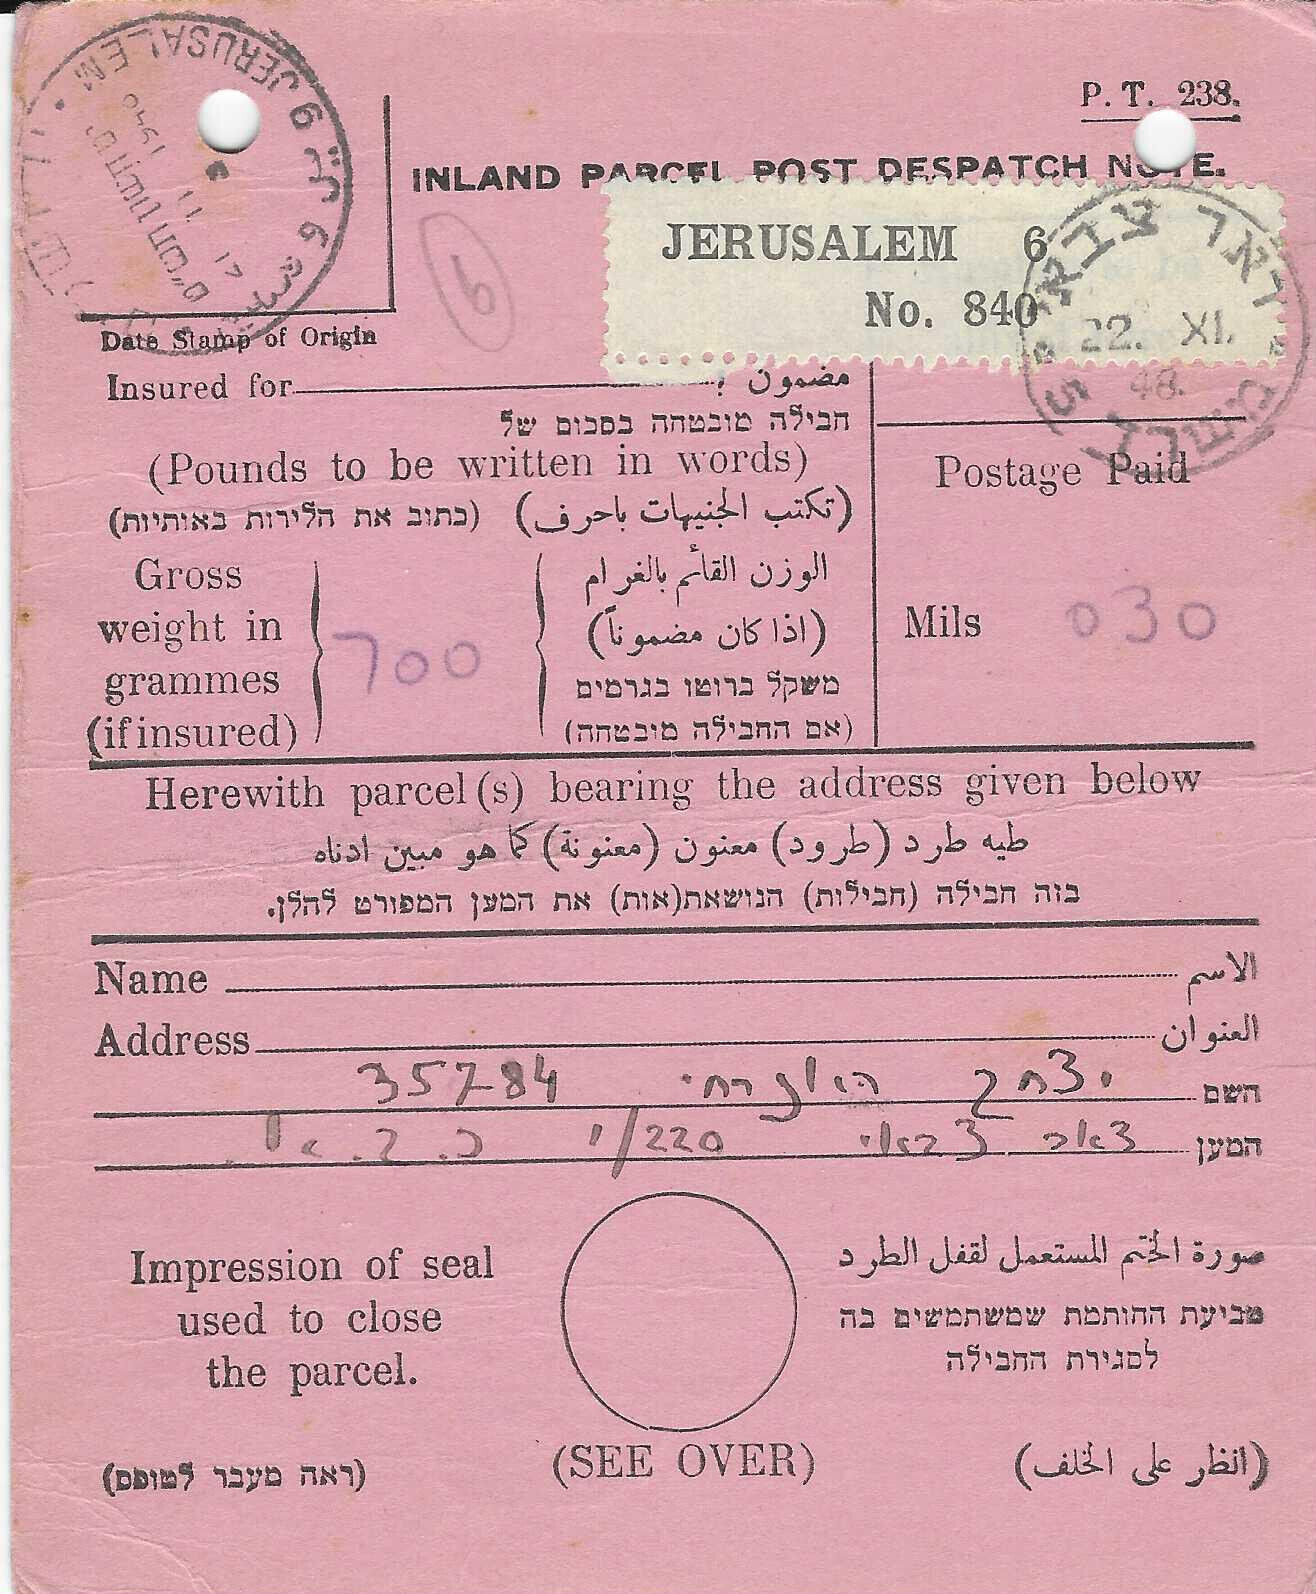 JERUSALEM
17 11 1940
P. T. 238.
INLAND PARCEL POST DESPATCH NOTE.
JERUSALEM 6
No. 840
דאר צבאי
22. XI.
48.
5
Date Stamp of Origin
Insured for مضمون
חבילה מובטחה בסכום של
(Pounds to be written in words)
(تكتب الجنيهات باحرف) (כתוב את הלירות באותיות)
Postage Paid
Gross weight in grammes (if insured)
700
الوزن القائم بالغرام
(اذا كان مضموناً)
משקל ברוטו בגרמים
(אם החבילה מובטחה)
Mils 030
Herewith parcel(s) bearing the address given below
طيه طرد (طرود) معنون (معنونة) كما هو مبين ادناه
בזה חבילה (חבילות) הנושאת(אות) את המען המפורט להלן.
Name الاسم
Address العنوان
השם יצחק 35784
המען צבאי 220/י
Impression of seal
used to close
the parcel.
صورة الختم المستعمل لقفل الطرد
טביעת החותמת שמשתמשים בה
לסגירת החבילה
(ראה מעבר לטופס) (SEE OVER) (انظر على الخلف)